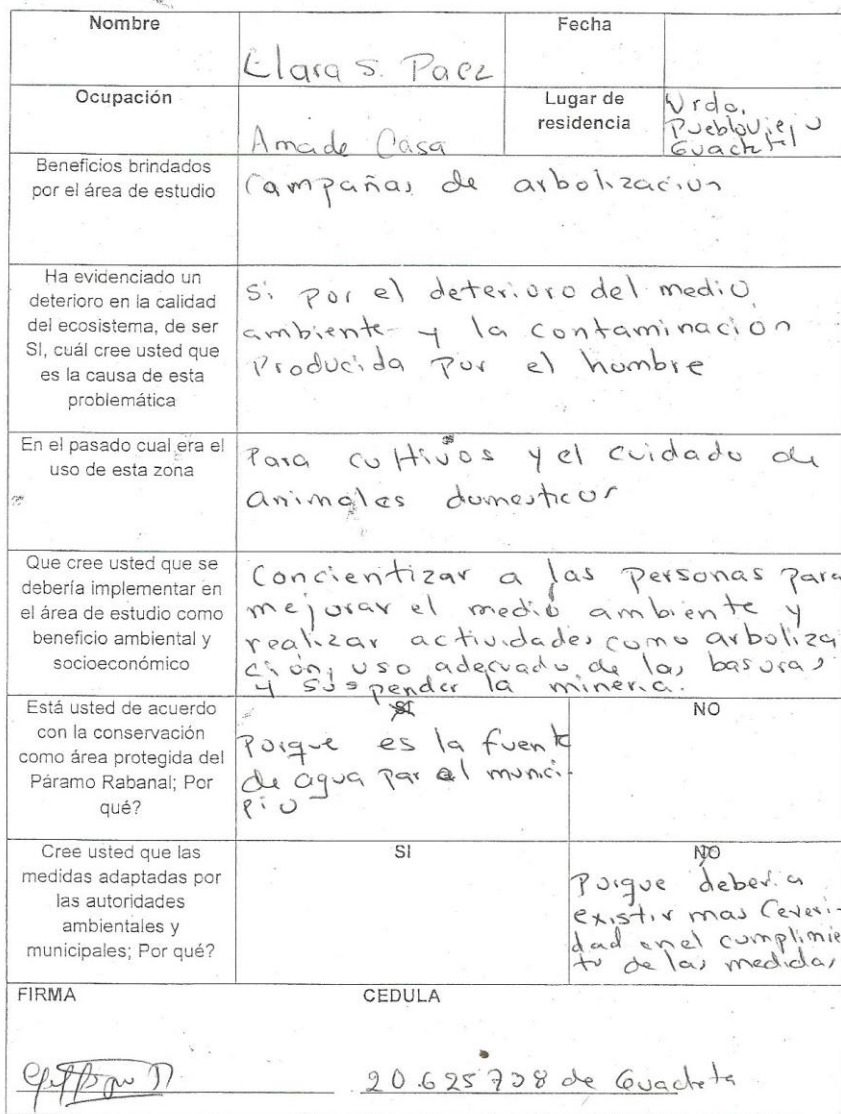 Nombre
Clara S. Paez
Fecha
Ocupación
Ama de Casa
Lugar de
residencia
Vrda.
Puebloviejo
Guacheta
Beneficios brindados
por el área de estudio
Campañas de arbolizacion
Ha evidenciado un
deterioro en la calidad
del ecosistema, de ser
SI, cuál cree usted que
es la causa de esta
problemática
Si por el deterioro del medio
ambiente y la contaminación
Producida por el hombre
En el pasado cual era el
uso de esta zona
Para cultivos y el cuidado de
animales domesticos
Que cree usted que se
debería implementar en
el área de estudio como
beneficio ambiental y
socioeconómico
Concientizar a las personas para
mejorar el medio ambiente y
realizar actividades como arboliza
ción, uso adecuado de las basuras
y suspender la mineria.
Está usted de acuerdo
con la conservación
como área protegida del
Páramo Rabanal; Por
qué?
SI
Porque es la fuente
de agua par el munici-
pio
NO
Cree usted que las
medidas adaptadas por
las autoridades
ambientales y
municipales; Por qué?
SI
NO
Porque deberia
existir mas Ceveri-
dad en el cumplimie
to de las medidas
FIRMA
CEDULA
de Guacheta